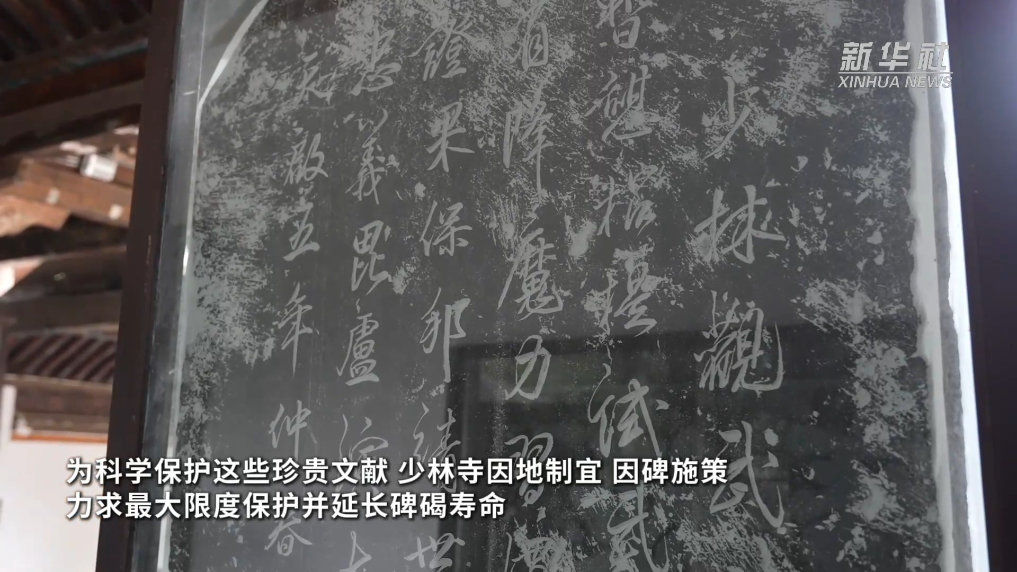 新华社
XINHUA NEWS
少林觀武
暂憩招提試武
有降魔力習
證果保邦
忠義毘盧
天啟五年仲春
为科学保护这些珍贵文献 少林寺因地制宜 因碑施策
力求最大限度保护并延长碑碣寿命